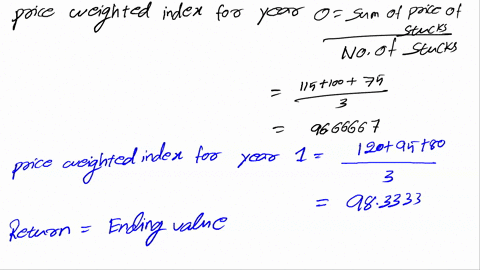 price weighted index for year 0 = sum of price of stucks
No. of stucks
= 115+100+75
3
= 9666667
price weighted index for year 1 = 120+95+80
3
= 98.3333
Return = Ending value